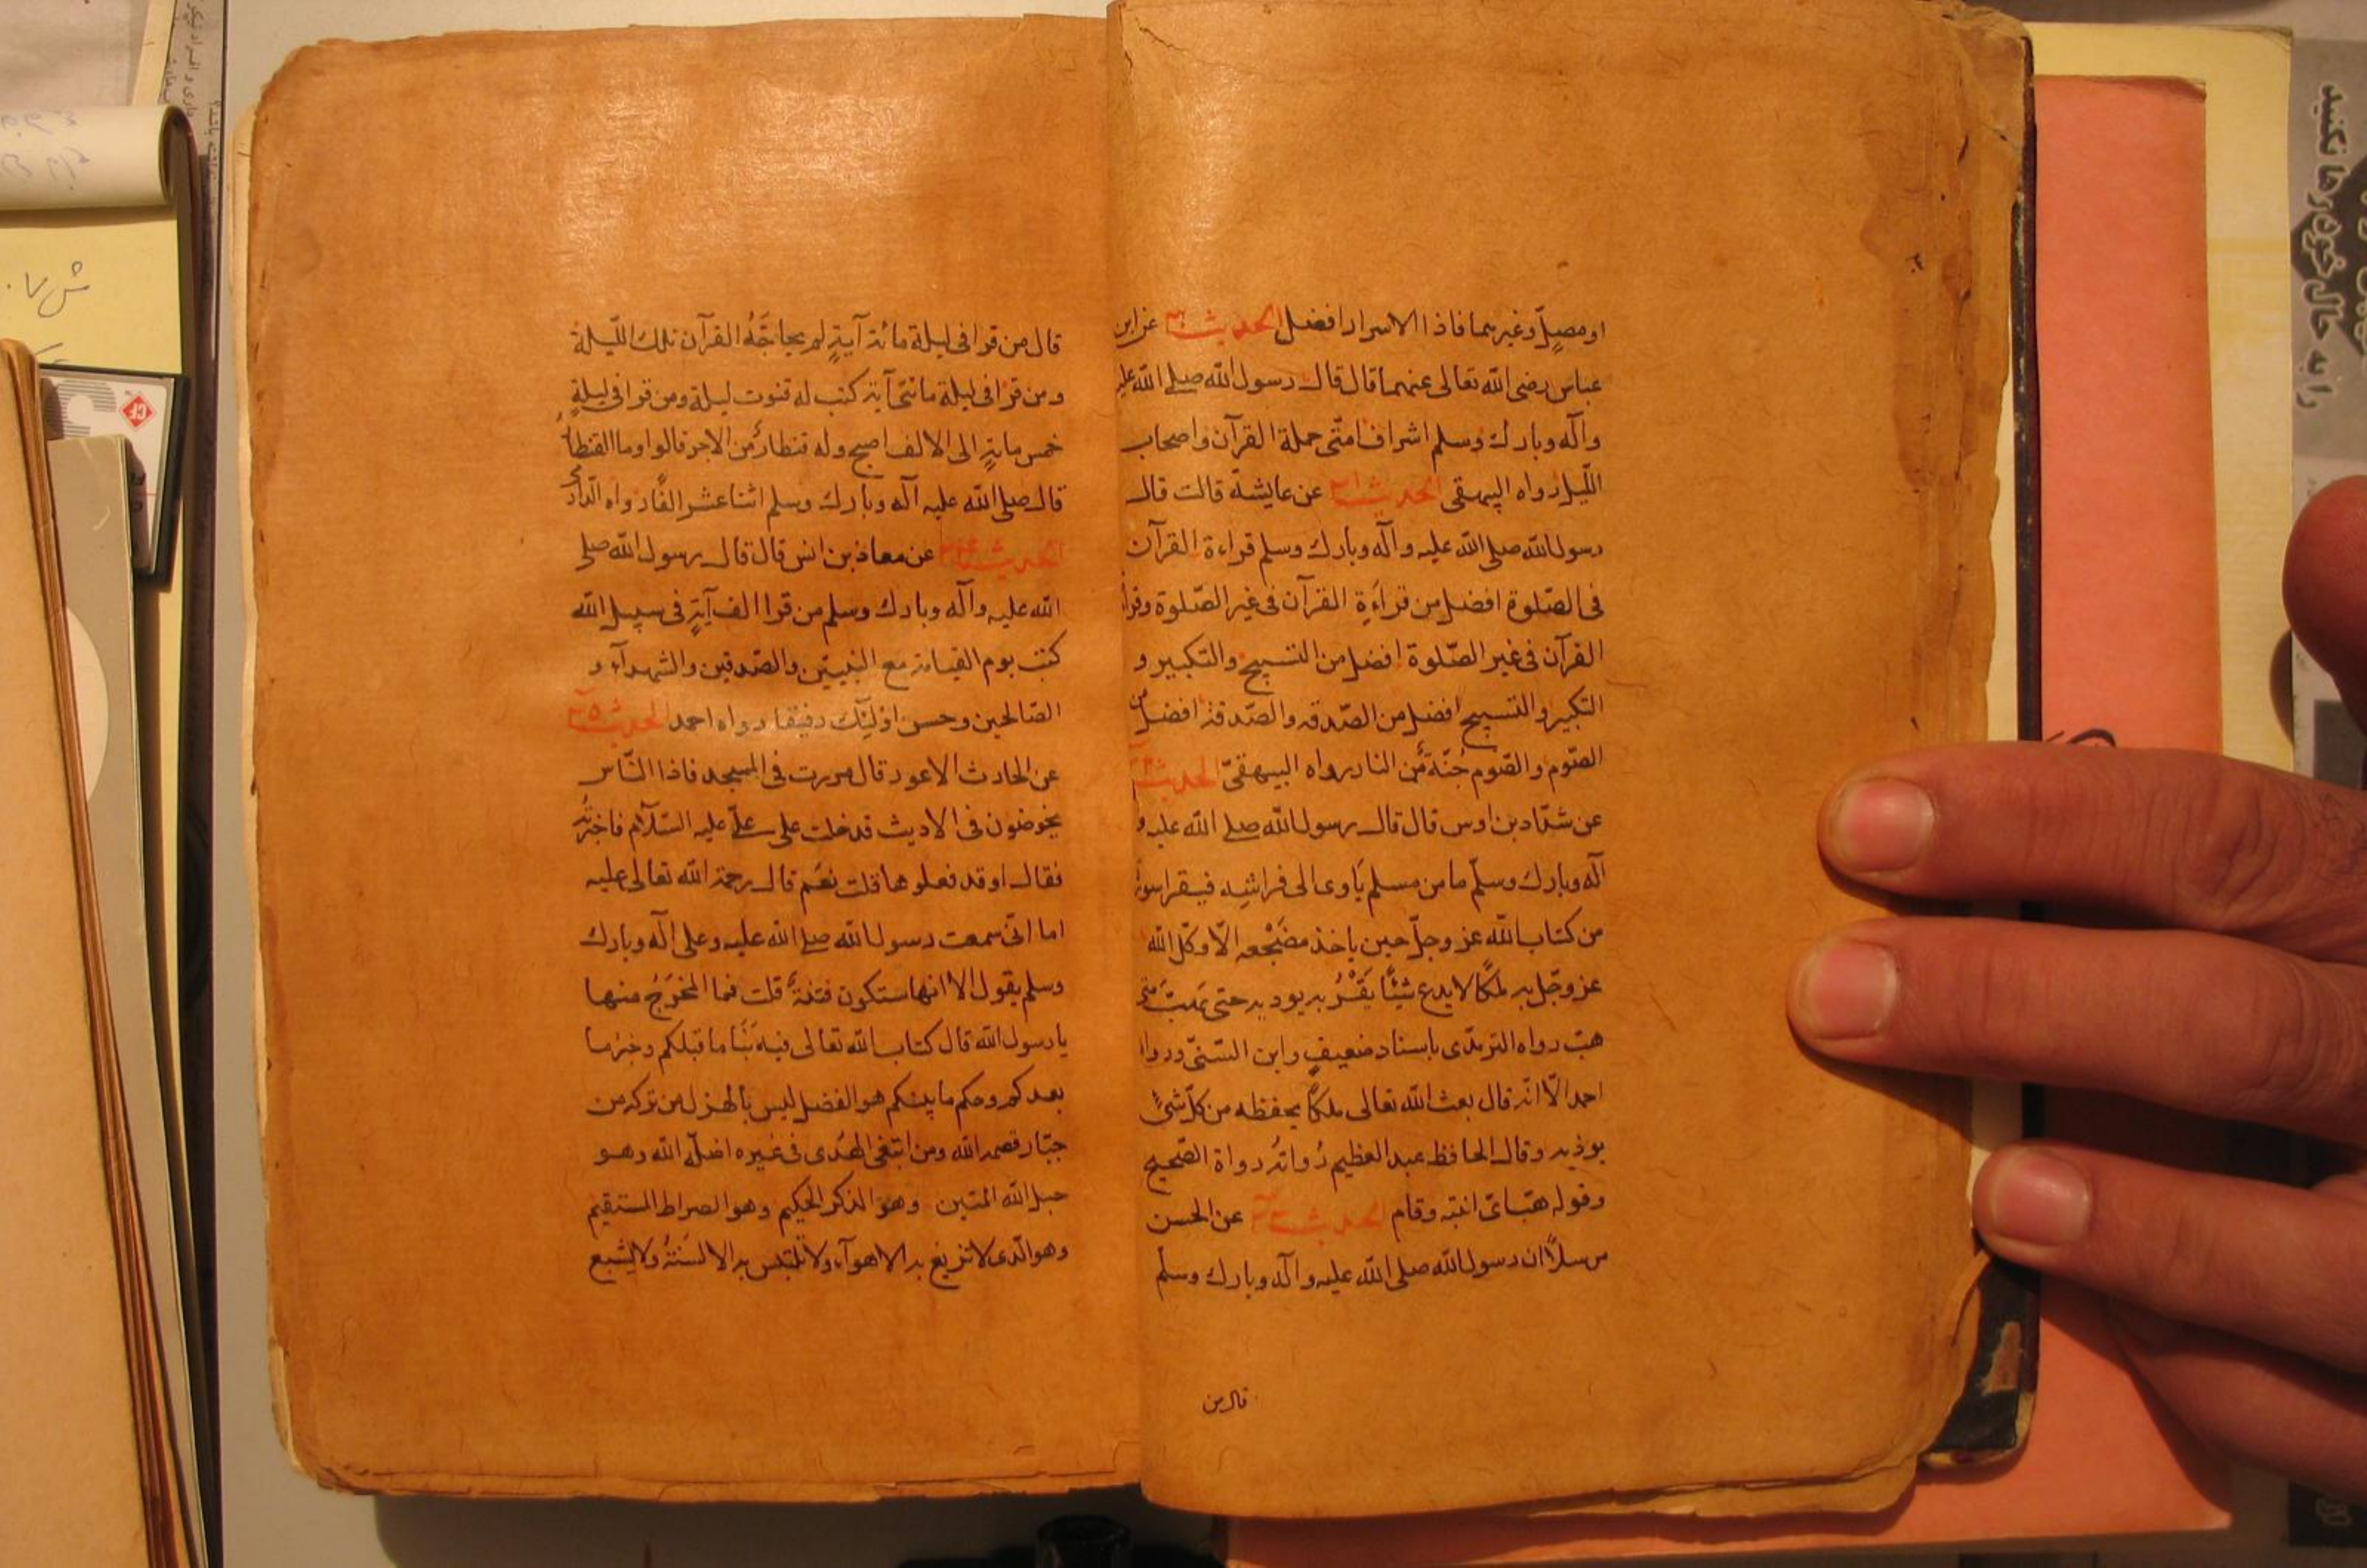 او مصلّ وغيرهما فاذا الاسرار افضل الحديث ٢٠ عن ابن
عباس رضى الله تعالى عنهما قال قال رسول الله صلى الله عليه
وآله وبارك وسلم اشراف امتى حملة القرآن واصحاب
اللّيل رواه البيهقى الحديث ٢١ عن عايشة قالت قال
رسول الله صلى الله عليه وآله وبارك وسلم قراءة القرآن
فى الصّلوة افضل من قراءة القرآن فى غير الصّلوة وقراءة
القرآن فى غير الصّلوة افضل من التسبيح والتكبير و
التكبير والتسبيح افضل من الصّدقه والصّدقة افضل من
الصّوم والصّوم جُنّة من النار رواه البيهقىّ الحديث ٢٢
عن شدّاد بن اوس قال قال رسول الله صلى الله عليه و
آله وبارك وسلّم ما من مسلم ياوى الى فراشه فيقرا سورة
من كتاب الله عز وجلّ حين ياخذ مضجعه الّا وكّل الله
عز وجّل به ملكًا لا يدع شيئًا يقربه يوديه حتى يهبّ متى
هبّ رواه الترمذى باسناد ضعيفٍ وابن السّنىّ ورواه
احمد الّا انّه قال بعث الله تعالى ملكًا يحفظه من كلّ شىءٍ
يوذيه وقال الحافظ عبد العظيم رُواتُه رواة الصّحيح
وقوله هبّ اىّ انتبه وقام الحديث ٢٣ عن الحسن
مرسلًا ان رسول الله صلى الله عليه وآله وبارك وسلّم
قال من
قال من قرا فى ليلة مائة آيةٍ لم يحاجّه القرآن تلك اللّيلة
ومن قرا فى ليلة مائتى آية كتب له قنوت ليلة ومن قرا فى ليلةٍ
خمس مايةٍ الى الالف اصبح وله قنطارٌ من الاجر قالوا وما القنطار
قال صلى الله عليه آله وبارك وسلم اثنا عشر الفًا رواه الدّارمى
الحديث ٢٤ عن معاذ بن انس قال قال رسول الله صلى
الله عليه وآله وبارك وسلم من قرا الف آيةٍ فى سبيل الله
كتب يوم القيامة مع النبيّين والصّدقين والشهدآء و
الصّالحين وحسن اولئك رفيقا رواه احمد الحديث ٢٥
عن الحارث الاعور قال مررت فى المسجد فاذا النّاس
يخوضون فى الاديث فدخلت على علىّ عليه السّلام فاخبرته
فقال او قد فعلوها قلت نعم قال رحمة الله تعالى عليه
اما انّى سمعت رسول الله صلى الله عليه وعلى آله وبارك
وسلم يقول الا انها ستكون فتنةٌ قلت فما المخرج منها
يا رسول الله قال كتاب الله تعالى فيه نبأ ما قبلكم وخبر ما
بعدكم وحكم ما بينكم هو الفضل ليس بالهزل من تركه من
جبّار قصمه الله ومن ابتغى الهدى فى غيره اضلّه الله وهو
حبل الله المتين وهو الذكر الحكيم وهو الصراط المستقيم
وهو الّذى لا تزيغ به الاهوآء ولا تلتبس به الالسنة ولا يشبع